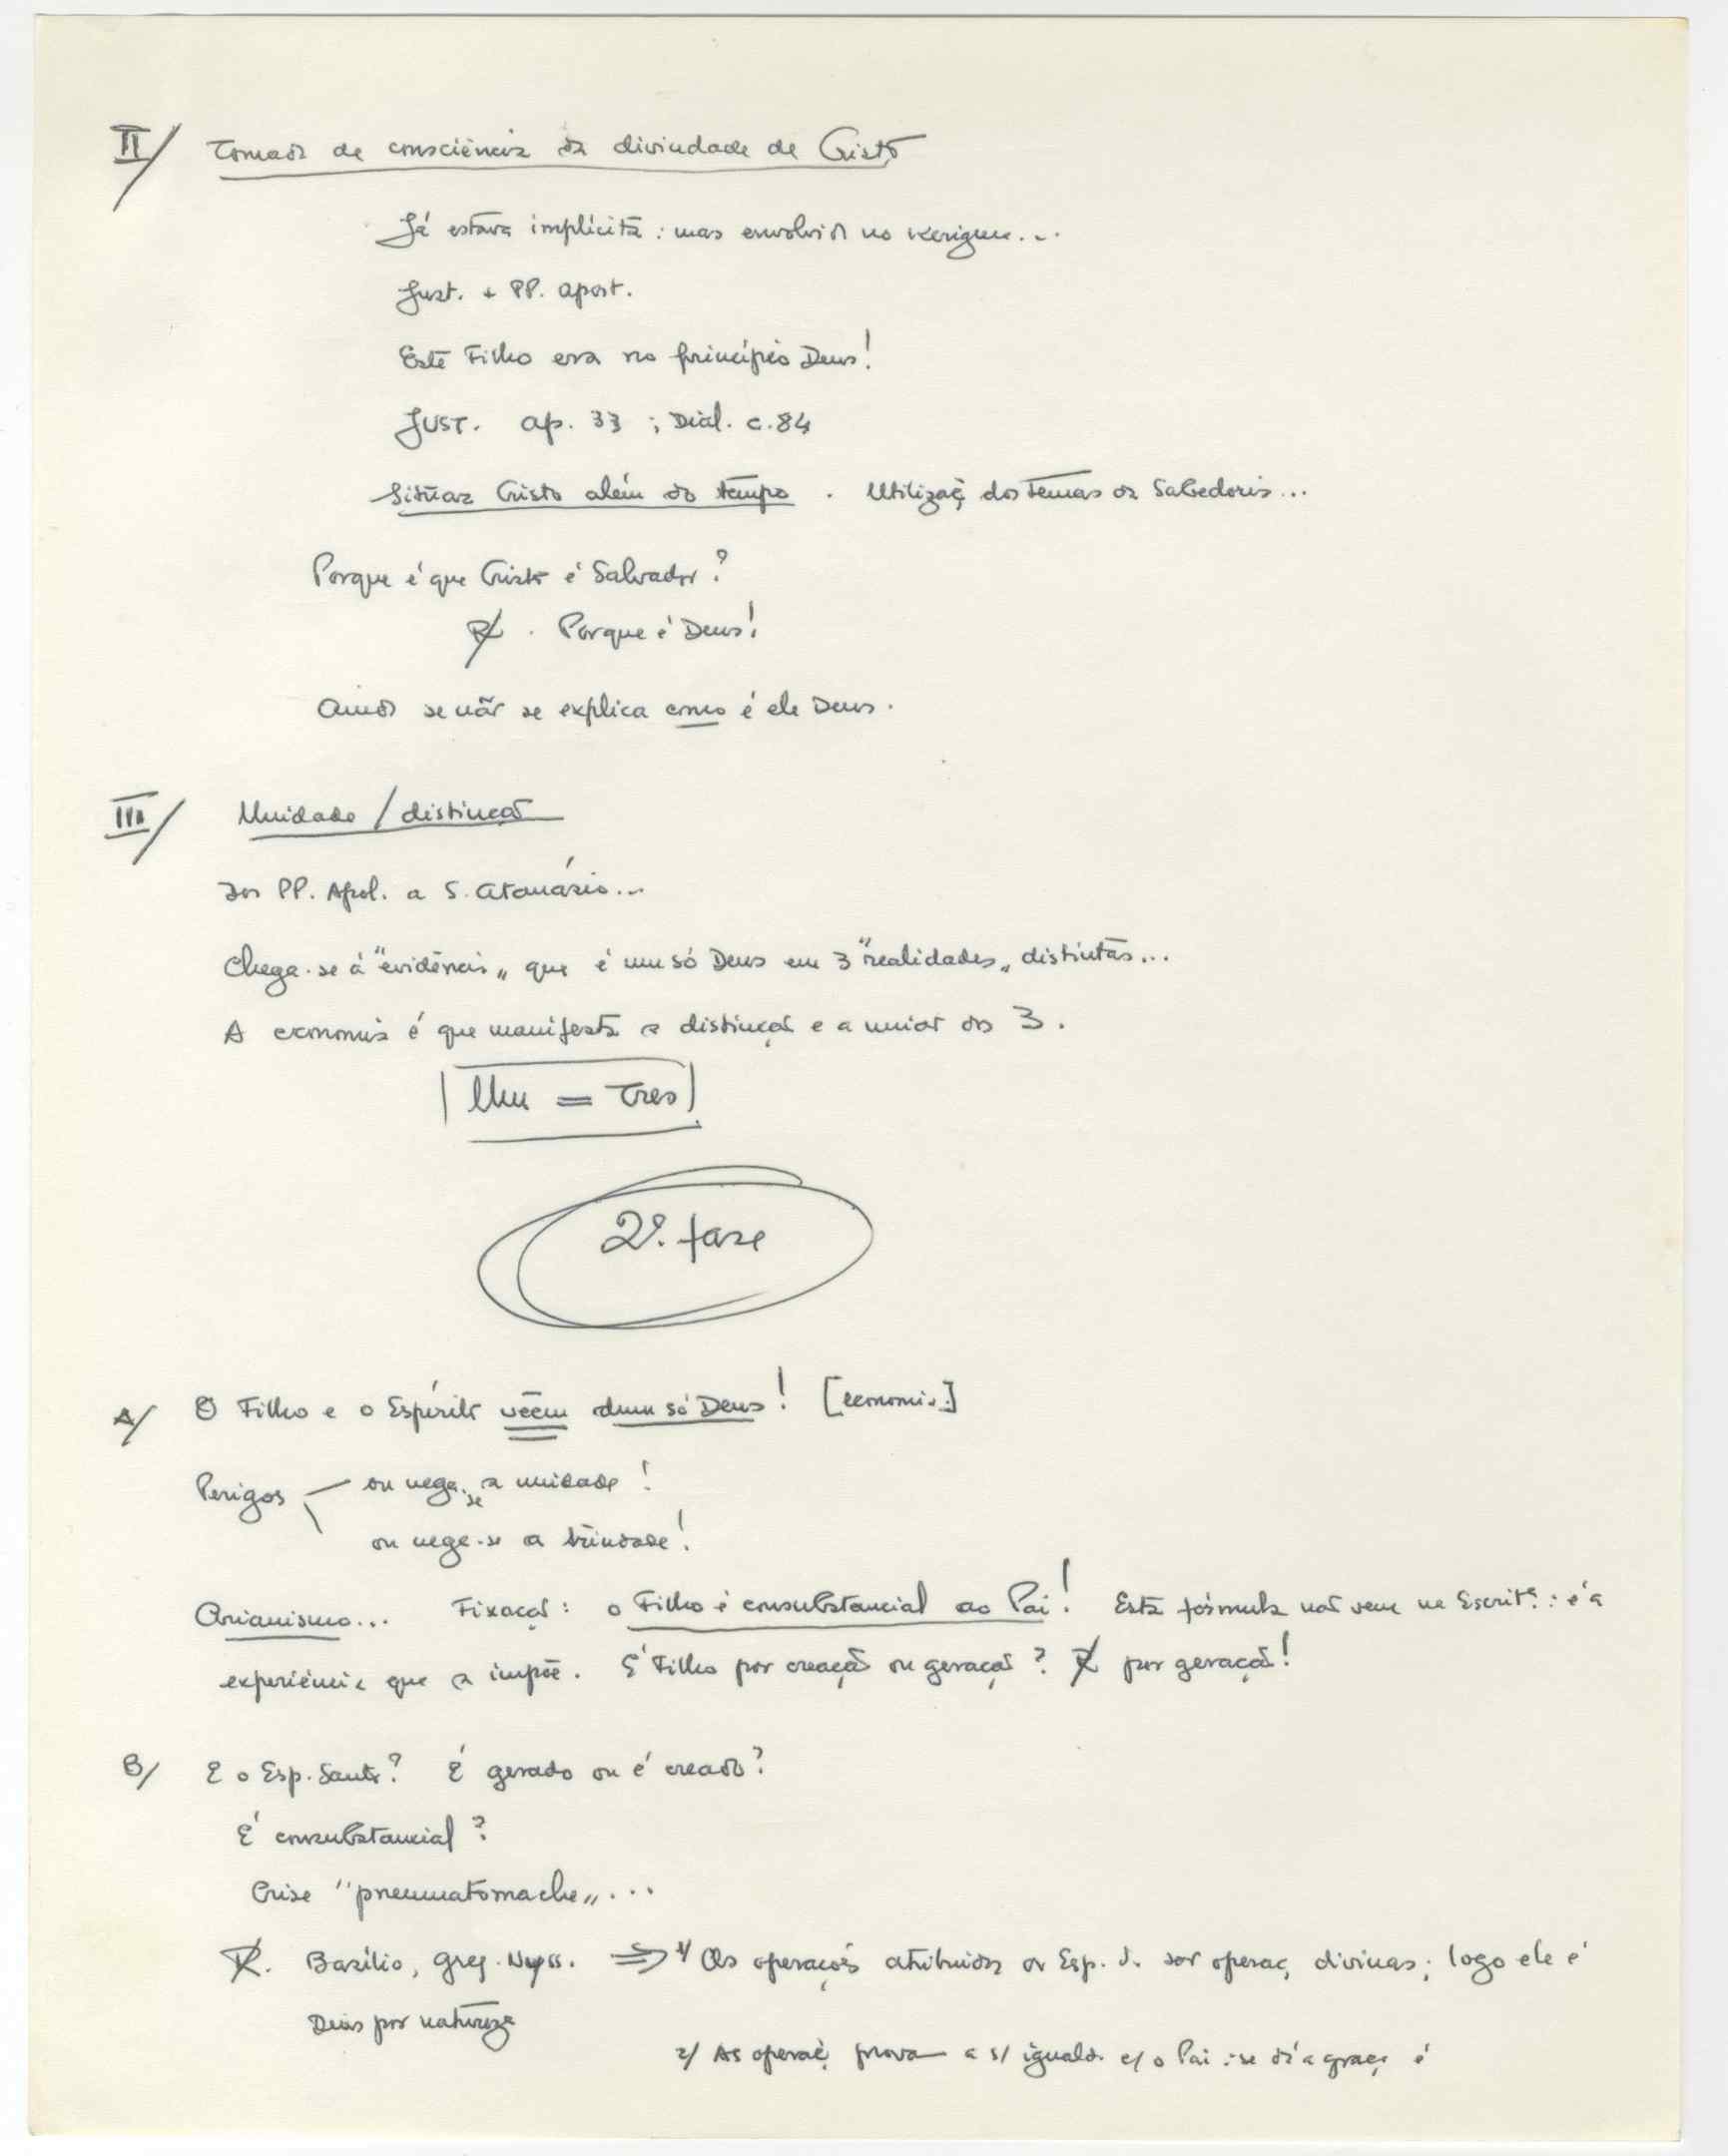 II/ Tomada de consciência da divindade de Cristo
Já estava implícita : mas envolvida no kerigma...
Just. + PP. apost.
Este Filho era no princípio Deus!
JUST. ap. 33 ; Dial. c. 84
Situar Cristo além do tempo . Utilizaç dos temas da Sabedoria...
Porque é que Cristo é Salvador?
R/. Porque é Deus!
Ainda se não se explica como é ele Deus.
III/ Unidade / distinção
Dos PP. Apol. a S. Atanásio...
Chega-se á "evidência" que é um só Deus em 3 "realidades" distintas...
A economia é que manifesta a distinção e a unidade dos 3.
Um = Tres
2ª. fase
A/ O Filho e o Espírito vêem dum só Deus! [economia]
Perigos ou nega-se a unidade!
ou nega-se a trindade!
Arianismo... Fixação: o Filho é consubstancial ao Pai! Esta fórmula não vem na Escritª.: é a
experiência que a impõe. É Filho por creação ou geração? R/ por geração!
B/ E o Esp. Santo? É gerado ou é creado?
É consubstancial?
Crise "pneumatomache"...
R/. Basílio, Greg. Nyss. => 1/ As operações atribuidas ao Esp. S. são operaç divinas; logo ele é
Deus por natureza
2/ As operaç provam a s/ iguald. c/ o Pai : se dá a graça é